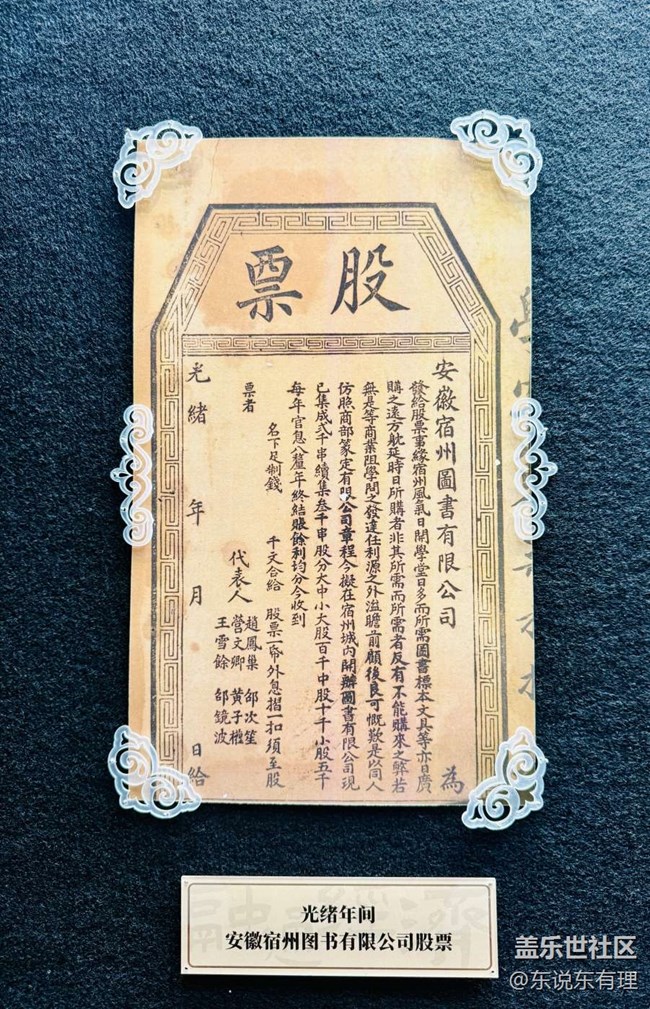 股票
安徽宿州圖書有限公司 為
發給股票事緣宿州風氣日開學堂日多而所需圖書標本文具等亦日廣
購之遠方躭延時日所購者非其所需而所需者反有不能購來之弊若
無是等商業阻學問之發達任利源之外溢瞻前顧後良可慨歎是以同人
仿照商部篆定有限公司章程今擬在宿州城内開辦圖書有限公司現
已集成弍千串續集叁千串股分大中小大股百千中股十千小股五千
每年官息八釐年終結賬餘利均分今收到
名下足制錢 千文合給 股票一帋外息摺一扣須至股
票者
代表人 趙鳳巢 邵次笙
營文卿 黃子楹
王雪餘 邵鏡波
光緒 年 月 日給
光绪年间
安徽宿州图书有限公司股票
盖乐世社区
@东说东有理